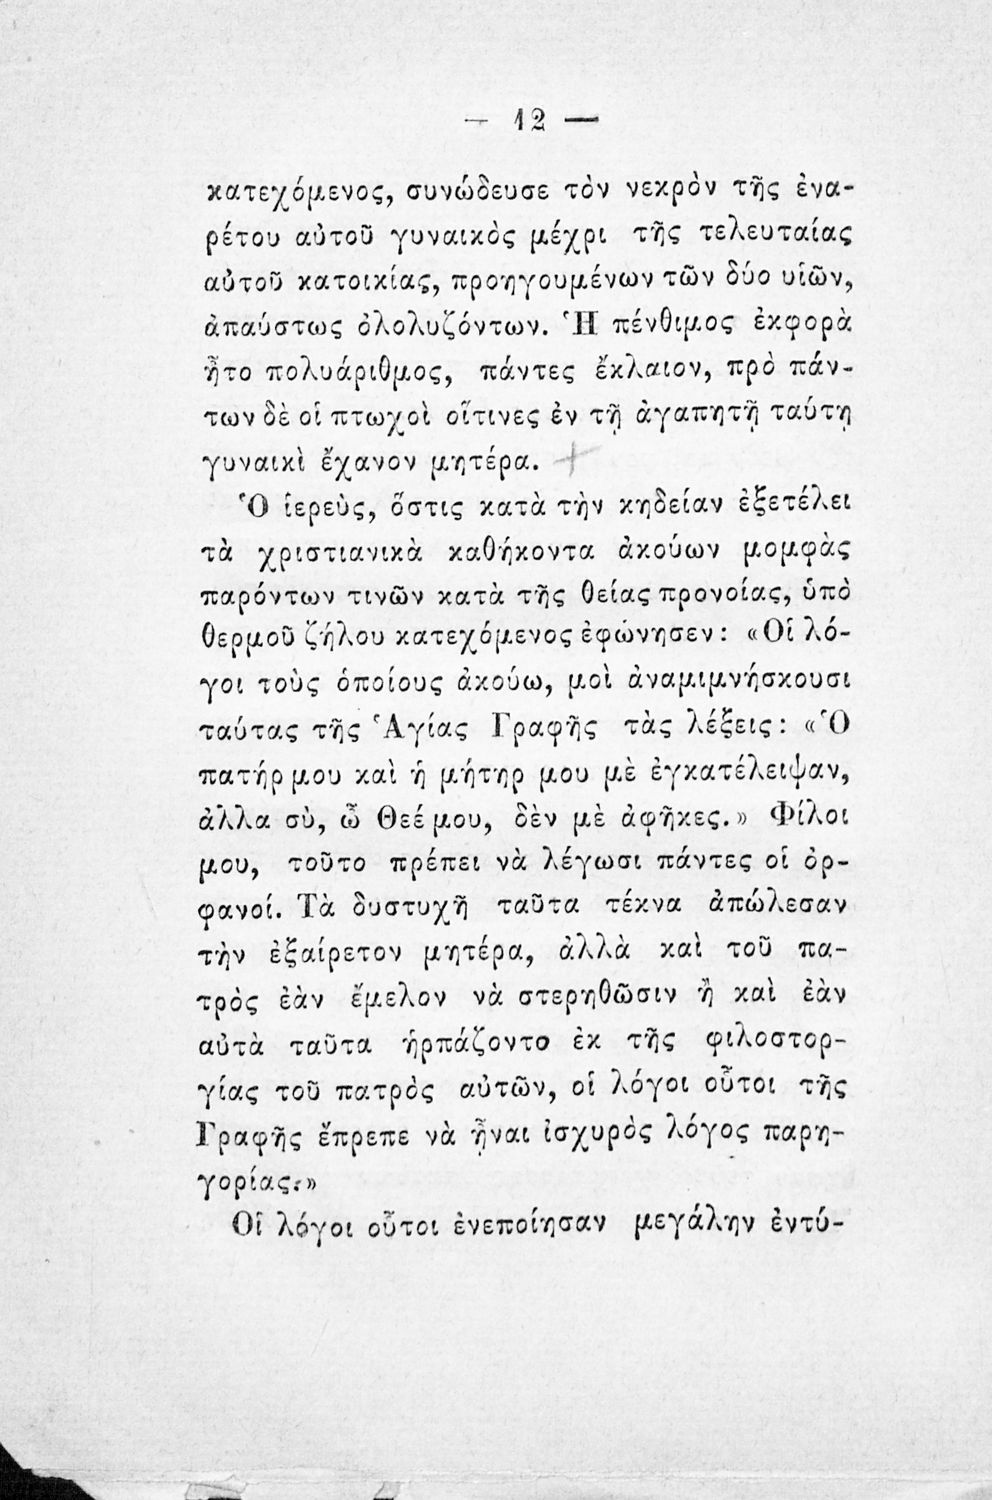 — 12 —
κατεχόμενος, συνώδευσε τὸν νεκρὸν τῆς ἐνα-
ρέτου αὐτοῦ γυναικὸς μέχρι τῆς τελευταίας
αὐτοῦ κατοικίας, προηγουμένων τῶν δύο υἱῶν,
ἀπαύστως ὀλολυζόντων. Ἡ πένθιμος ἐκφορὰ
ἦτο πολυάριθμος, πάντες ἔκλαιον, πρὸ πάν-
των δὲ οἱ πτωχοὶ οἵτινες ἐν τῇ ἀγαπητῇ ταύτῃ
γυναικὶ ἔχανον μητέρα.
Ὁ ἱερεὺς, ὅστις κατὰ τὴν κηδείαν ἐξετέλει
τὰ χριστιανικὰ καθήκοντα ἀκούων μομφὰς
παρόντων τινῶν κατὰ τῆς θείας προνοίας, ὑπὸ
θερμοῦ ζήλου κατεχόμενος ἐφώνησεν: «Οἱ λό-
γοι τοὺς ὁποίους ἀκούω, μοὶ ἀναμιμνήσκουσι
ταύτας τῆς Ἁγίας Γραφῆς τὰς λέξεις: «Ὁ
πατήρ μου καὶ ἡ μήτηρ μου μὲ ἐγκατέλειψαν,
ἀλλα σὺ, ὦ Θεέ μου, δὲν μὲ ἀφῆκες.» Φίλοι
μου, τοῦτο πρέπει νὰ λέγωσι πάντες οἱ ὀρ-
φανοί. Τὰ δυστυχῆ ταῦτα τέκνα ἀπώλεσαν
τὴν ἐξαίρετον μητέρα, ἀλλὰ καὶ τοῦ πα-
τρὸς ἐὰν ἔμελον νὰ στερηθῶσιν ἢ καὶ ἐὰν
αὐτὰ ταῦτα ἡρπάζοντο ἐκ τῆς φιλοστορ-
γίας τοῦ πατρὸς αὐτῶν, οἱ λόγοι οὗτοι τῆς
Γραφῆς ἔπρεπε νὰ ᾖναι ἰσχυρὸς λόγος παρη-
γορίας.»
Οἱ λόγοι οὗτοι ἐνεποίησαν μεγάλην ἐντύ-